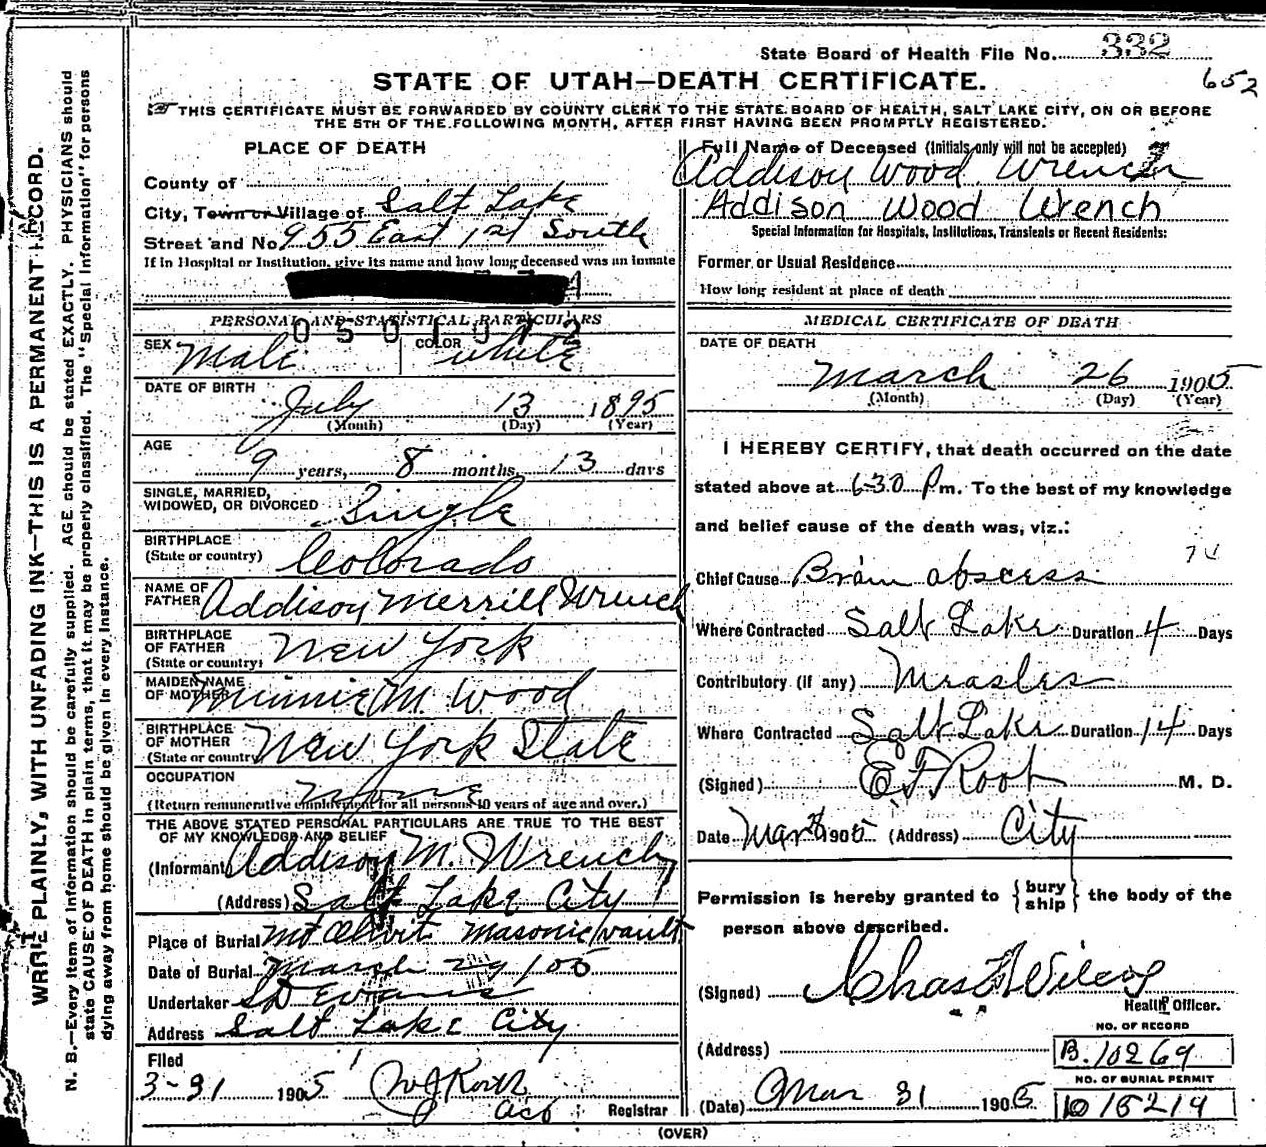 State Board of Health File No. 332
652
STATE OF UTAH—DEATH CERTIFICATE.
THIS CERTIFICATE MUST BE FORWARDED BY COUNTY CLERK TO THE STATE BOARD OF HEALTH, SALT LAKE CITY, ON OR BEFORE
THE 5TH OF THE FOLLOWING MONTH, AFTER FIRST HAVING BEEN PROMPTLY REGISTERED.
WRITE PLAINLY, WITH UNFADING INK—THIS IS A PERMANENT RECORD.
N. B.—Every item of information should be carefully supplied. AGE should be stated EXACTLY. PHYSICIANS should
state CAUSE OF DEATH in plain terms, that it may be properly classified. The "Special Information" for persons
dying away from home should be given in every instance.
PLACE OF DEATH
County of
City, Town or Village of Salt Lake
Street and No. 953 East 1st South
If in Hospital or Institution, give its name and how long deceased was an inmate
PERSONAL AND STATISTICAL PARTICULARS
0501072
SEX Male COLOR white
DATE OF BIRTH
July 13 1895
(Month) (Day) (Year)
AGE
9 years, 8 months, 13 days
SINGLE, MARRIED,
WIDOWED, OR DIVORCED Single
BIRTHPLACE
(State or country) Colorado
NAME OF
FATHER Addison Merrill Wrench
BIRTHPLACE
OF FATHER
(State or country) New York
MAIDEN NAME
OF MOTHER Minnie M. Wood
BIRTHPLACE
OF MOTHER
(State or country) New York State
OCCUPATION
None
(Return remunerative employment for all persons 10 years of age and over.)
THE ABOVE STATED PERSONAL PARTICULARS ARE TRUE TO THE BEST
OF MY KNOWLEDGE AND BELIEF
(Informant) Addison M. Wrench
(Address) Salt Lake City
Place of Burial Mt Olivet Masonic vault
Date of Burial March 29/05
Undertaker SD Evans
Address Salt Lake City
Filed
3-31 1905
Registrar
Full Name of Deceased (Initials only will not be accepted)
Addison Wood Wrench
Addison Wood Wrench
Special Information for Hospitals, Institutions, Transients or Recent Residents:
Former or Usual Residence
How long resident at place of death
MEDICAL CERTIFICATE OF DEATH
DATE OF DEATH
March 26 1905
(Month) (Day) (Year)
I HEREBY CERTIFY, that death occurred on the date
stated above at 6-30 P m. To the best of my knowledge
and belief cause of the death was, viz.:
Chief Cause Brain abscess
Where Contracted Salt Lake Duration 4 Days
Contributory (if any) Measles
Where Contracted Salt Lake Duration 14 Days
(Signed) E F Root M. D.
Date Mar 1905 (Address) City
Permission is hereby granted to { bury ship } the body of the
person above described.
(Signed) Chas F Wilcox
Health Officer.
(Address)
NO. OF RECORD
B. 10269
NO. OF BURIAL PERMIT
(Date) Mar 31 1905
(OVER)